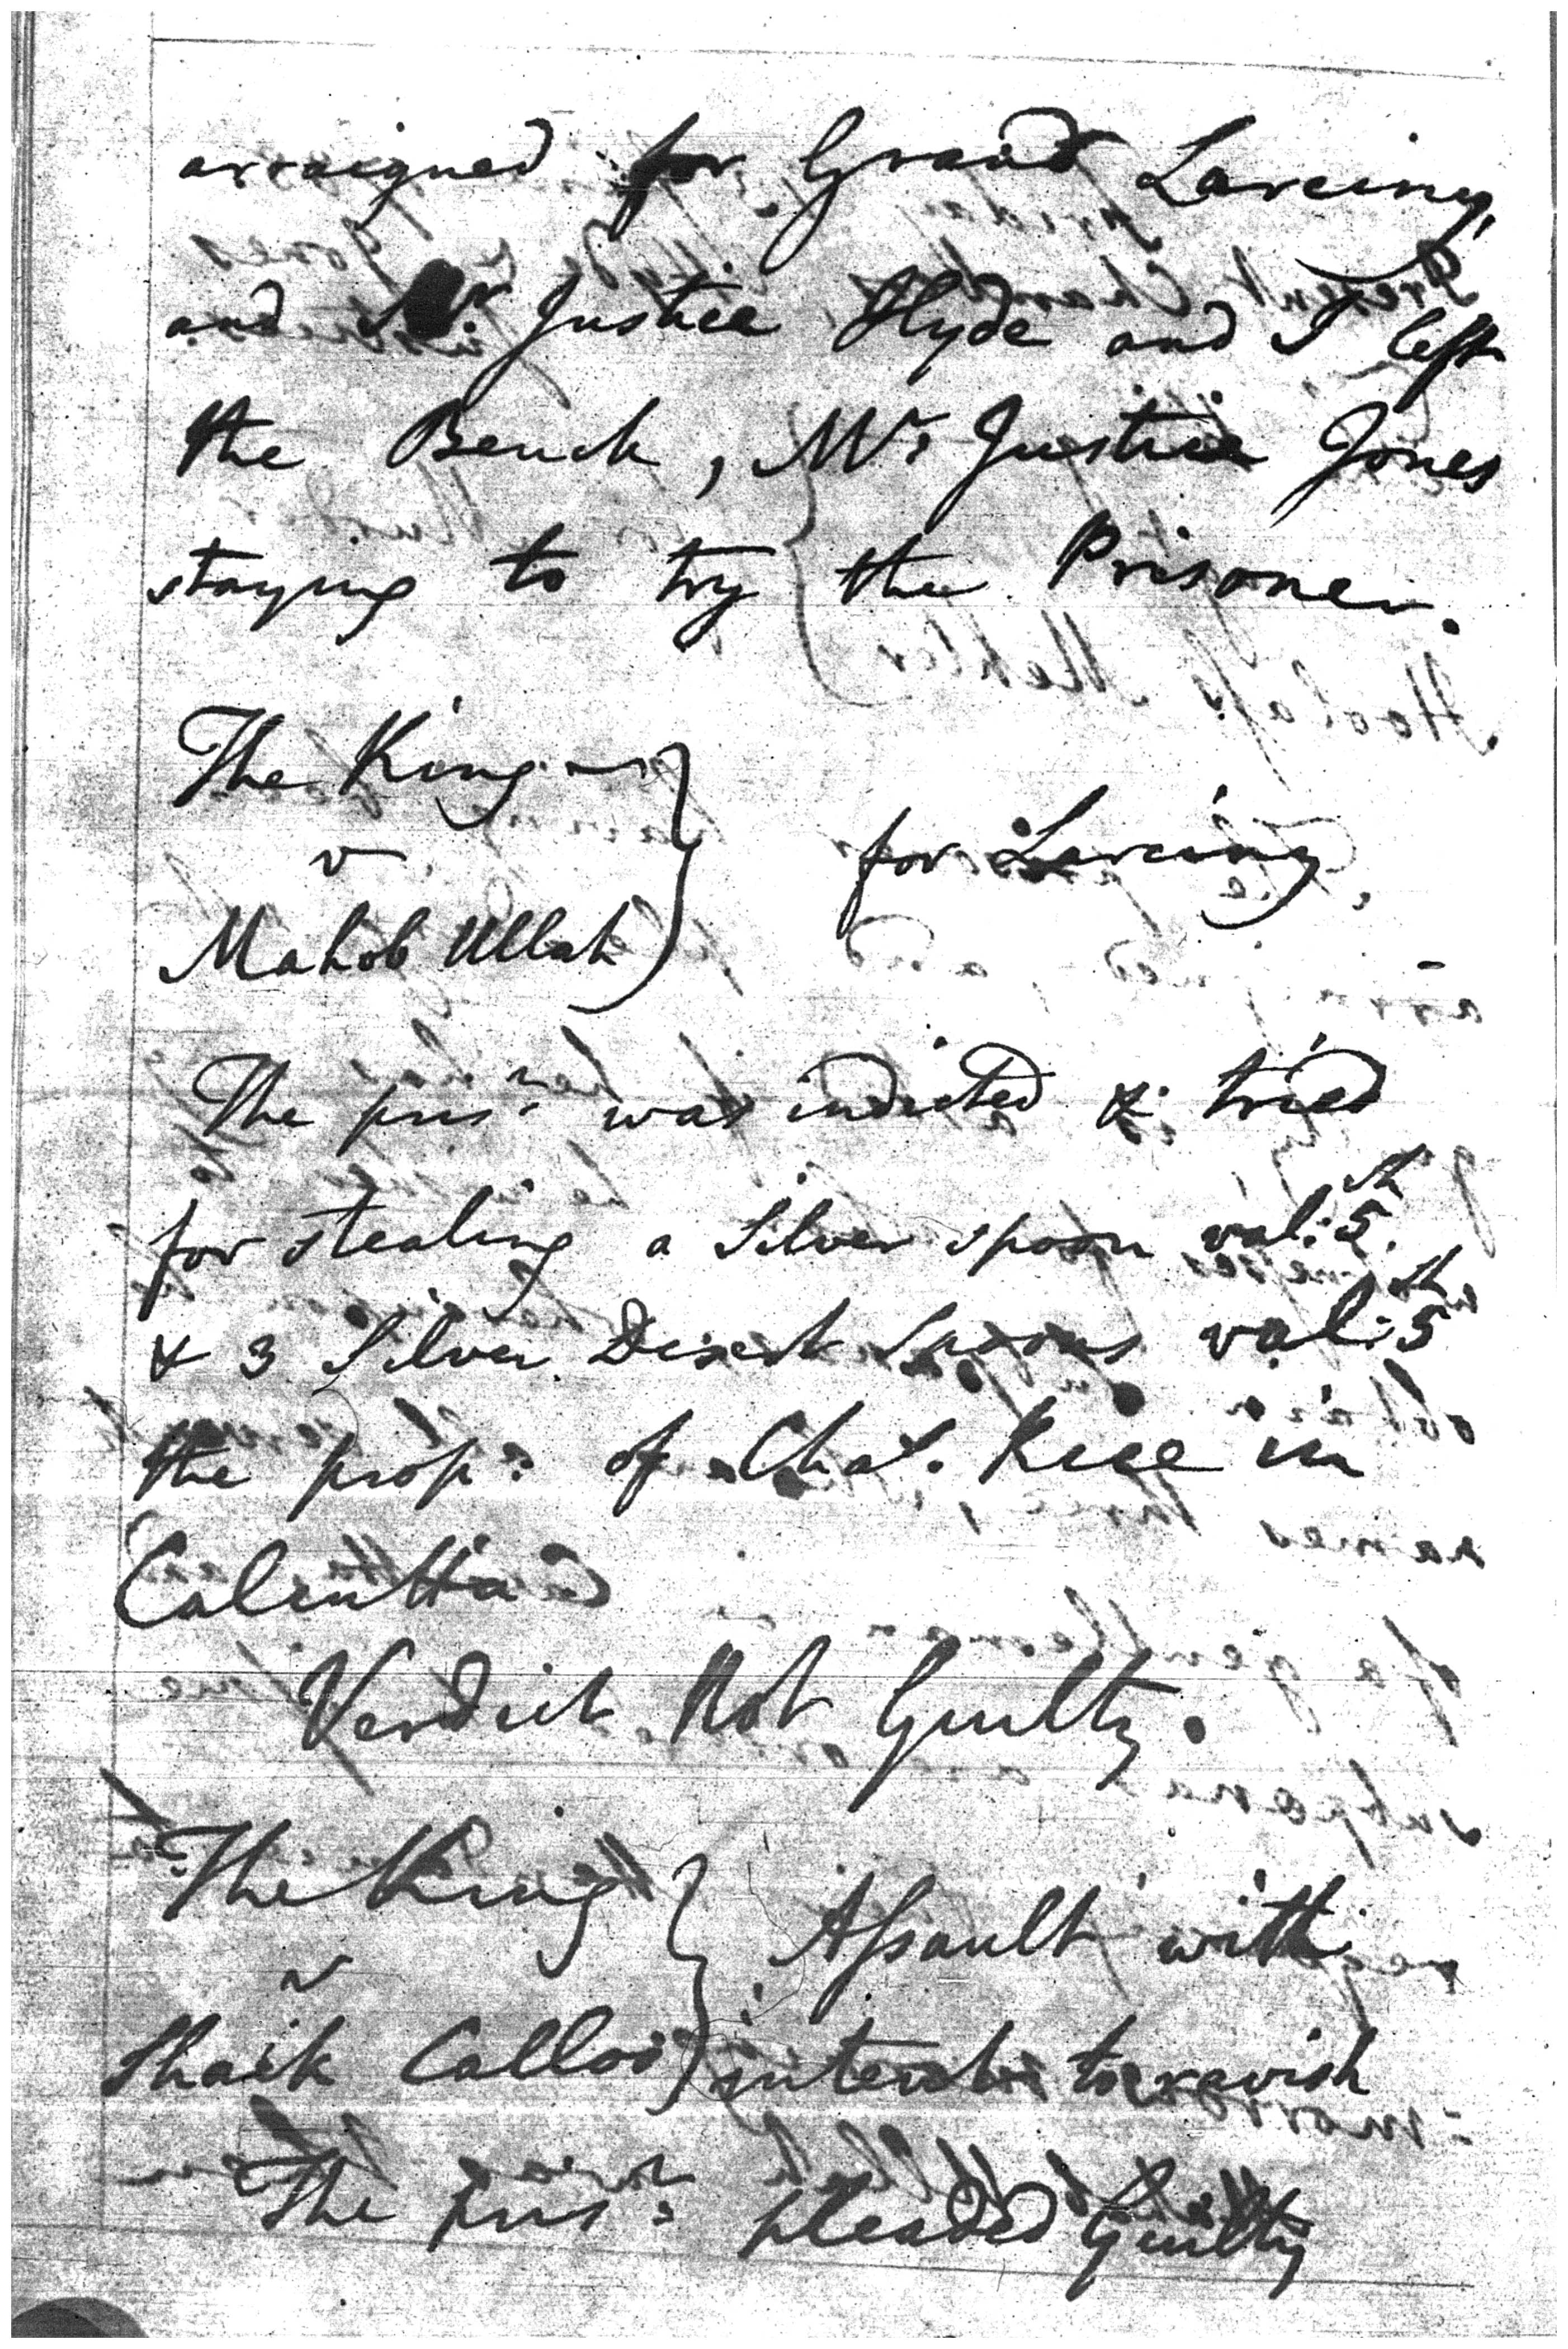 arraigned for Grand Larceny,
and Mr. Justice Hyde and I left
the Bench, Mr. Justice Jones
staying to try the Prisoner.
The King
v
Mahob Ullah
for Larceny
The prisr. was indicted & tried
for stealing a Silver spoon val: 5 sh
& 3 Silver Desert Spoons val: 5 sh
the prop: of Chas. Rice in
Calcutta
Verdict Not Guilty.
The King
v
Shaik Calloo
Assault with
intent to ravish
The prisr: pleaded Guilty